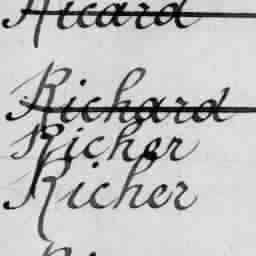 Ricard
Richard
Richer
Richer